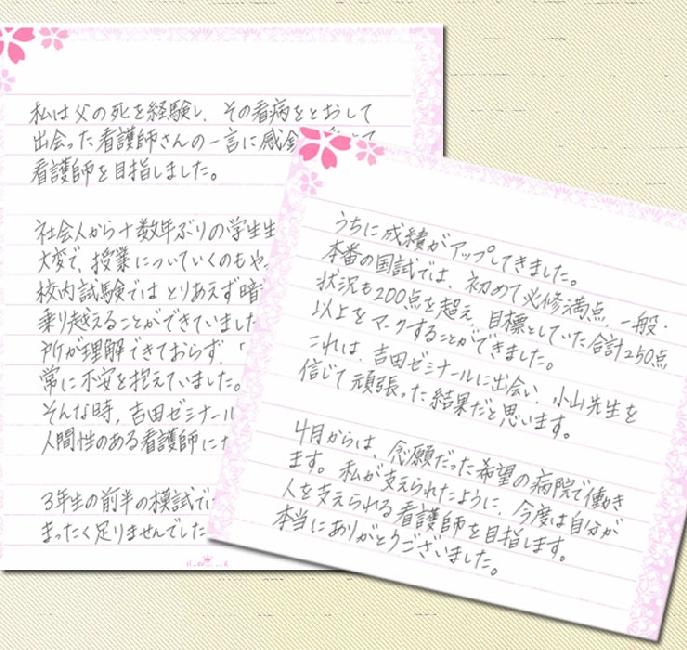 私は父の死を経験し、その看病をとおして
出会った看護師さんの一言に感
看護師を目指しました。
社会人から十数年ぶりの学生生
大変で、授業についていくのもや
校内試験では とりあえず暗
乗り越えることができていました
所が理解できておらず、「
常に不安を抱えていました。
そんな時、吉田ゼミナール
人間性のある看護師に
3年生の前半の模試で
まったく足りませんでした
うちに成績がアップしてきました。
本番の国試では、初めて必修満点、一般・
状況も200点を超え、目標としていた合計250点
以上をマークすることができました。
これは、吉田ゼミナールに出会い、小山先生を
信じて頑張った結果だと思います。
4月からは、念願だった希望の病院で働き
ます。私が支えられたように、今度は自分が
人を支えられる看護師を目指します。
本当にありがとうございました。